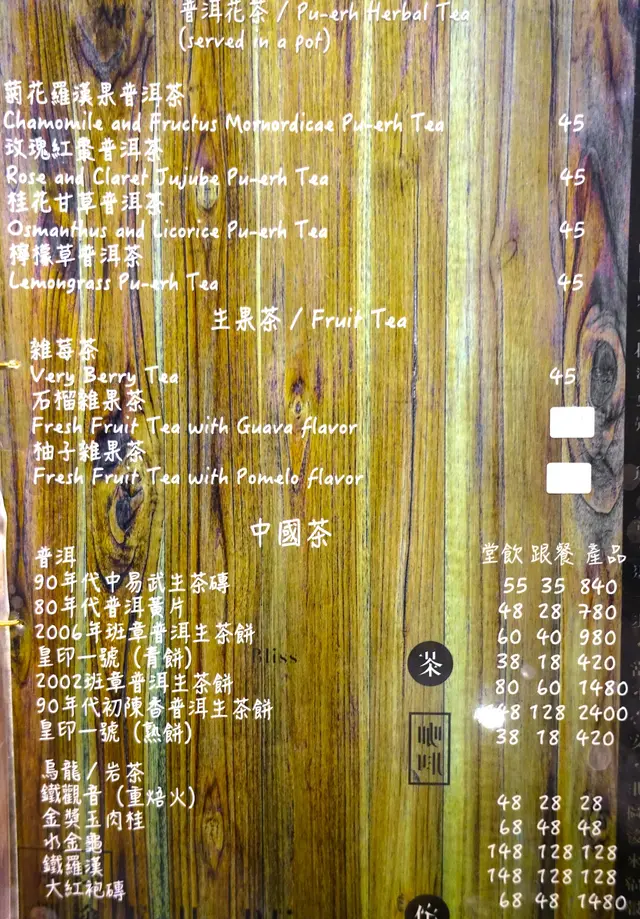 普洱花茶 / Pu-erh Herbal Tea
(served in a pot)
菊花羅漢果普洱茶
Chamomile and Fructus Mornordicae Pu-erh Tea 45
玫瑰紅棗普洱茶
Rose and Claret Jujube Pu-erh Tea 45
桂花甘草普洱茶
Osmanthus and Licorice Pu-erh Tea 45
檸檬草普洱茶
Lemongrass Pu-erh Tea 45
生果茶 / Fruit Tea
雜莓茶
Very Berry Tea 45
石榴雜果茶
Fresh Fruit Tea with Guava flavor
柚子雜果茶
Fresh Fruit Tea with Pomelo flavor
中國茶
普洱 堂飲 跟餐 產品
90年代中易武生茶磚 55 35 840
80年代普洱黃片 48 28 780
2006年班章普洱生茶餅 60 40 980
皇印一號 (青餅) 38 18 420
2002班章普洱生茶餅 80 60 1480
90年代初陳香普洱生茶餅 148 128 2400
皇印一號 (熟餅) 38 18 420
Bliss
茶
烏龍 / 岩茶
鐵觀音 (重焙火) 48 28 28
金獎玉肉桂 68 48 48
水金龜 148 128 128
鐵羅漢 148 128 128
大紅袍磚 68 48 1480